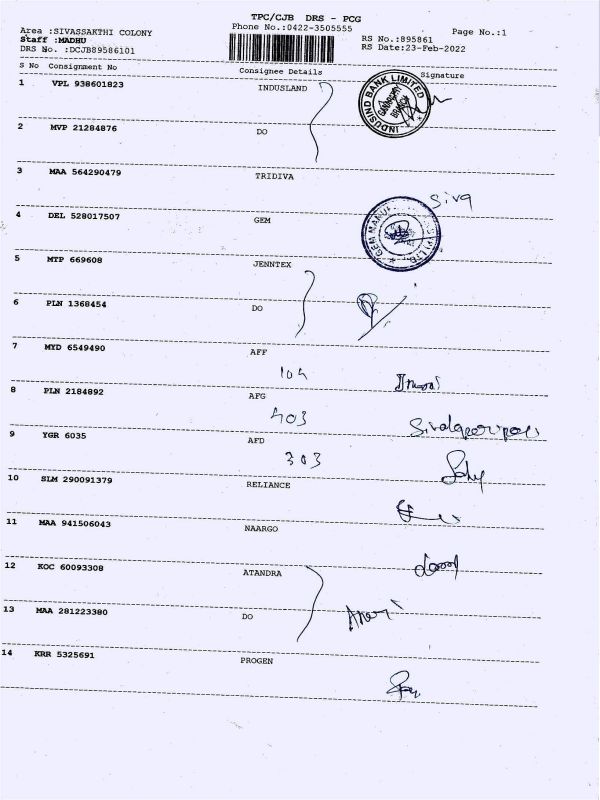 TPC/CJB DRS - PCG
Phone No.:0422-3505555
Page No.:1
Area :SIVASSAKTHI COLONY
Staff :MADHU
DRS No. :DCJB89586101
RS No.:895861
RS Date:23-Feb-2022
S No Consignment No Consignee Details Signature
1 VPL 938601823 INDUSLAND
INDUSIND BANK LIMITED
GANAPATHY BRANCH
2 MVP 21284876 DO
3 MAA 564290479 TRIDIVA
Siva
4 DEL 528017507 GEM
5 MTP 669608 JENNTEX
6 PLN 1368454 DO
7 MYD 6549490 AFF
104
8 PLN 2184892 AFG
403
9 YGR 6035 AFD
303
10 SLM 290091379 RELIANCE
11 MAA 941506043 NAARGO
12 KOC 60093308 ATANDRA
13 MAA 281223380 DO
14 KRR 5325691 PROGEN